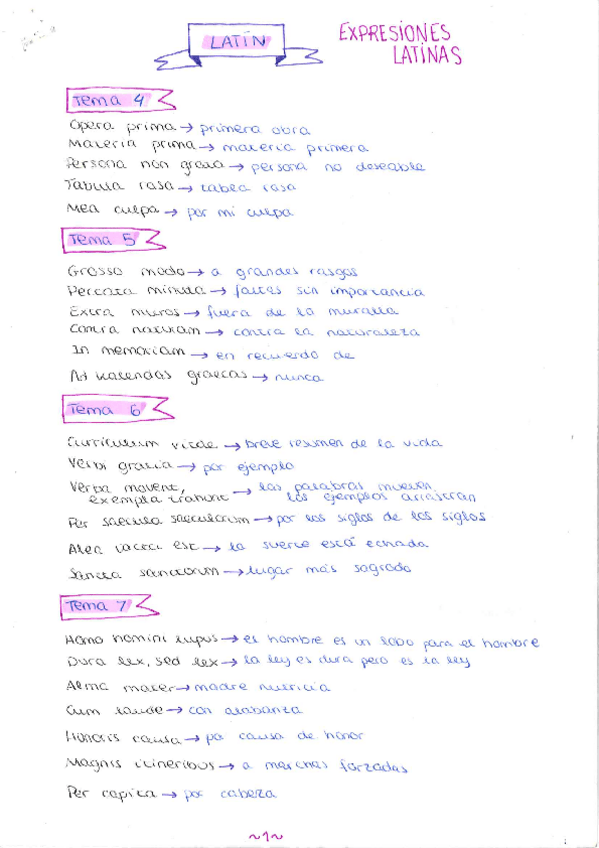 LATÍN
EXPRESIONES
LATINAS
Tema 4
Opera prima → primera obra
Materia prima → materia primera
Persona non grata → persona no deseable
Tabula rasa → tabla rasa
Mea culpa → por mi culpa
Tema 5
Grosso modo → a grandes rasgos
Peccata minuta → faltas sin importancia
Extra muros → fuera de la muralla
Contra naturam → contra la naturaleza
In memoriam → en recuerdo de
Ad kalendas graecas → nunca
Tema 6
Curriculum vitae → breve resumen de la vida
Verbi gratia → por ejemplo
Verba movent, → las palabras mueven,
exempla trahunt los ejemplos arrastran
Per saecula saeculorum → por los siglos de los siglos
Alea iacta est → la suerte está echada
Sancta sanctorum → lugar más sagrado
Tema 7
Homo homini lupus → el hombre es un lobo para el hombre
Dura lex, sed lex → la ley es dura pero es la ley
Alma mater → madre nutricia
Cum laude → con alabanza
Honoris causa → por causa de honor
Magnis itineribus → a marchas forzadas
Per capita → por cabeza
~1~